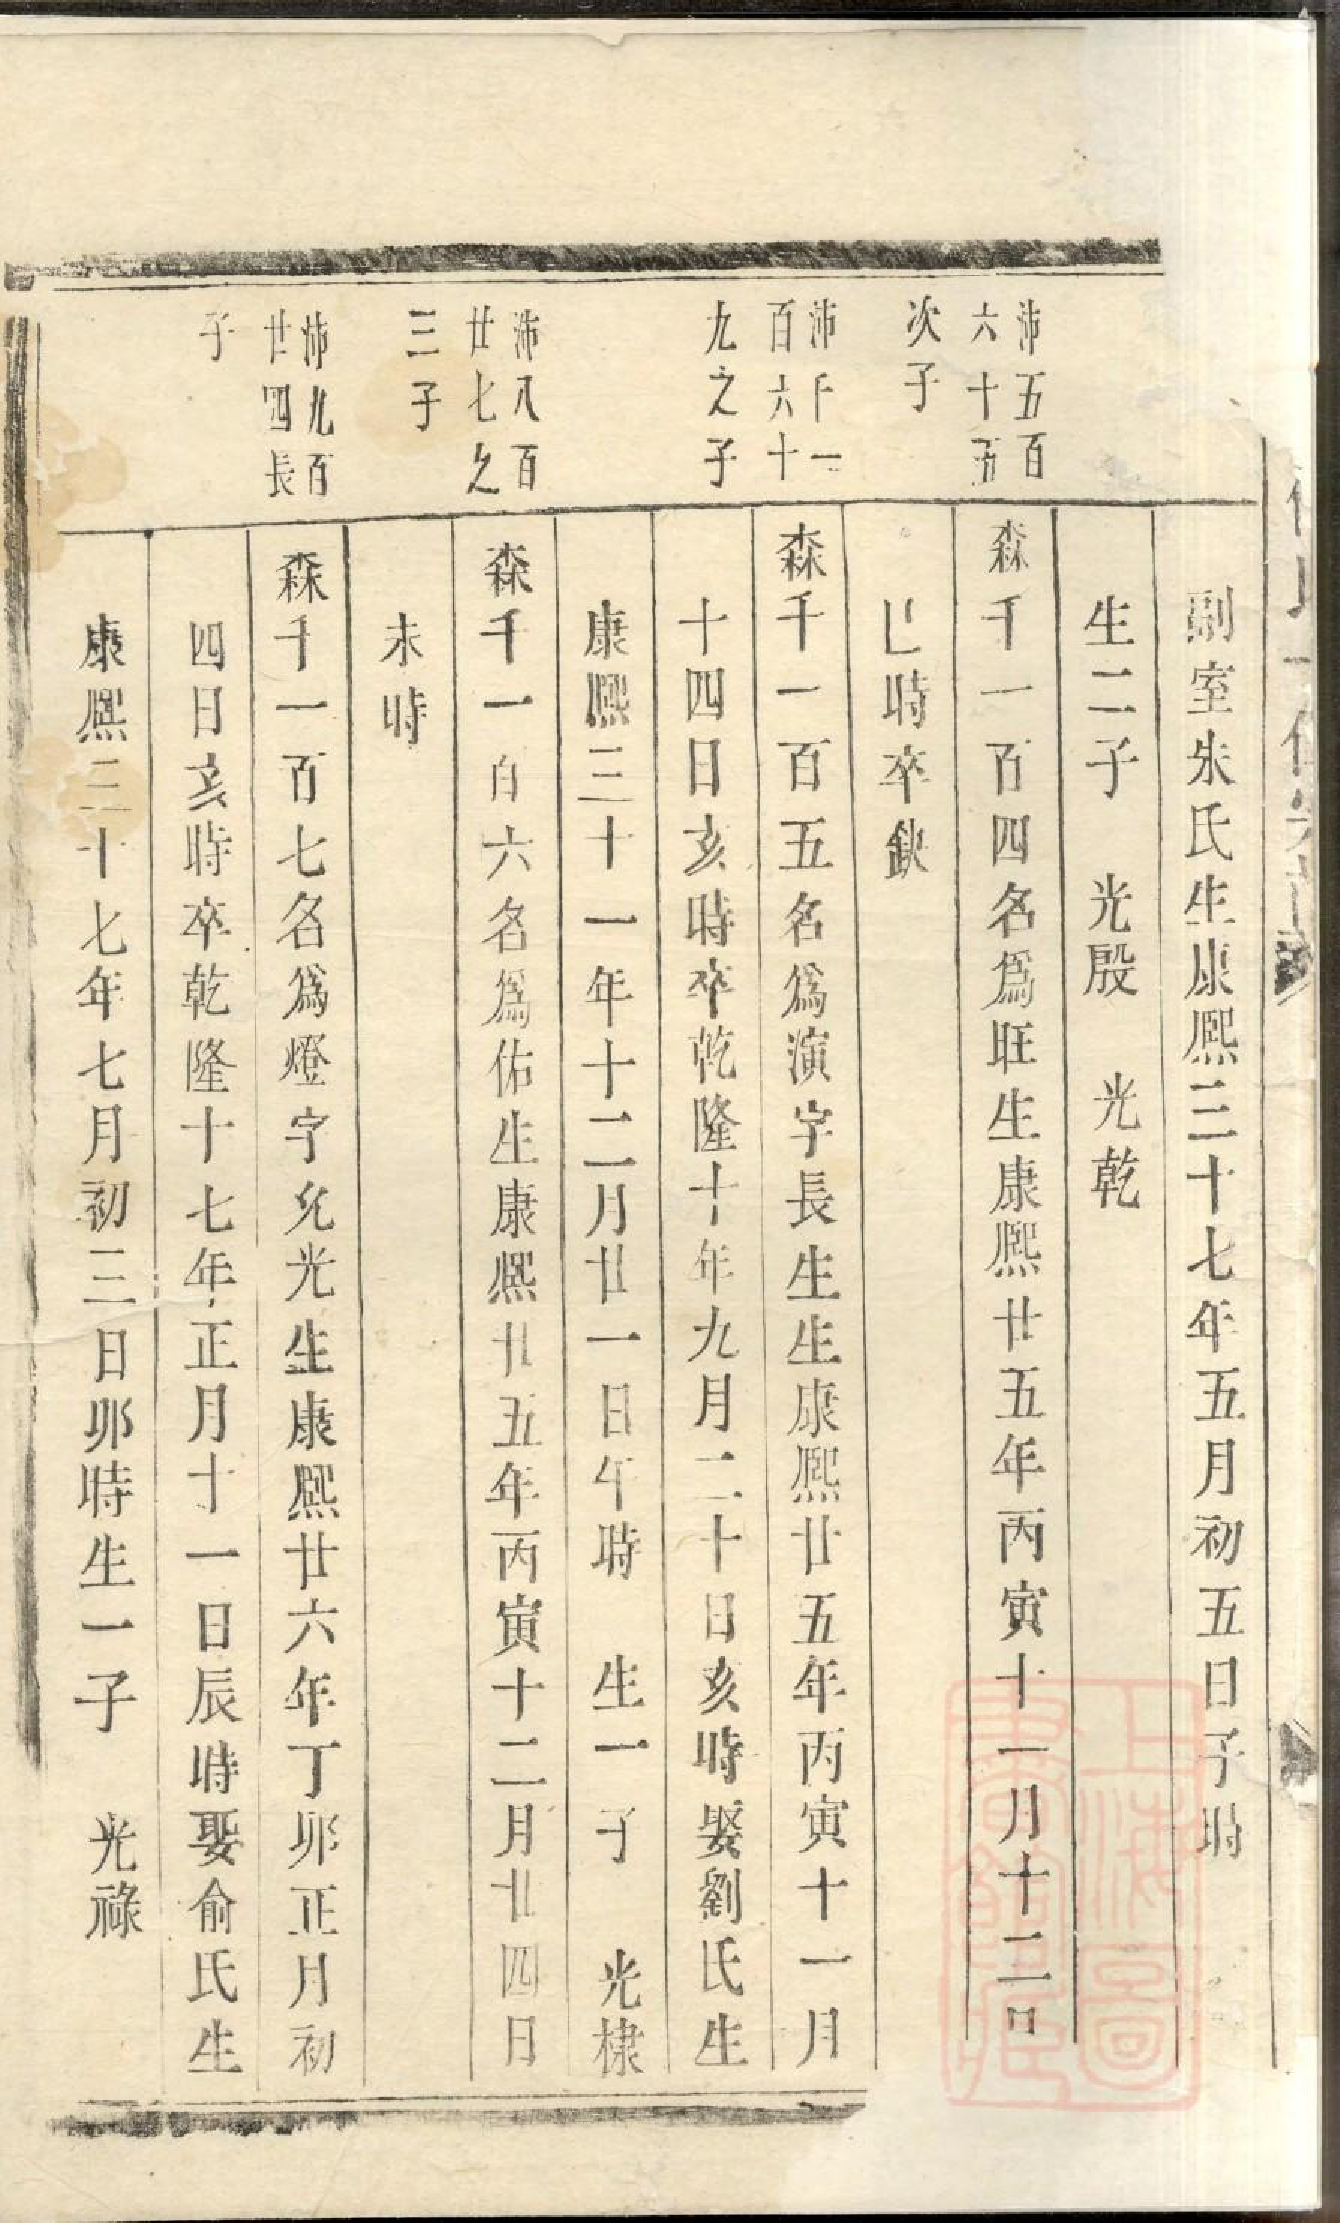 副室朱氏生康熙三十七年五月初五日子時
生二子　光殷　光乾
沛五百
六十五
次子
森千一百四名爲旺生康熙廿五年丙寅十一月十二日
巳時卒缺
沛千一
百六十
九之子
森千一百五名爲演字長生生康熙廿五年丙寅十一月
十四日亥時卒乾隆十年九月二十日亥時娶劉氏生
康熙三十一年十二月廿一日午時　生一子　光棣
沛八百
廿七之
三子
森千一百六名爲佑生康熙廿五年丙寅十二月廿四日
未時
沛九百
廿四長
子
森千一百七名爲燈字允光生康熙廿六年丁卯正月初
四日亥時卒乾隆十七年正月十一日辰時娶俞氏生
康熙三十七年七月初三日卯時生一子　光祿
上海圖
書館藏